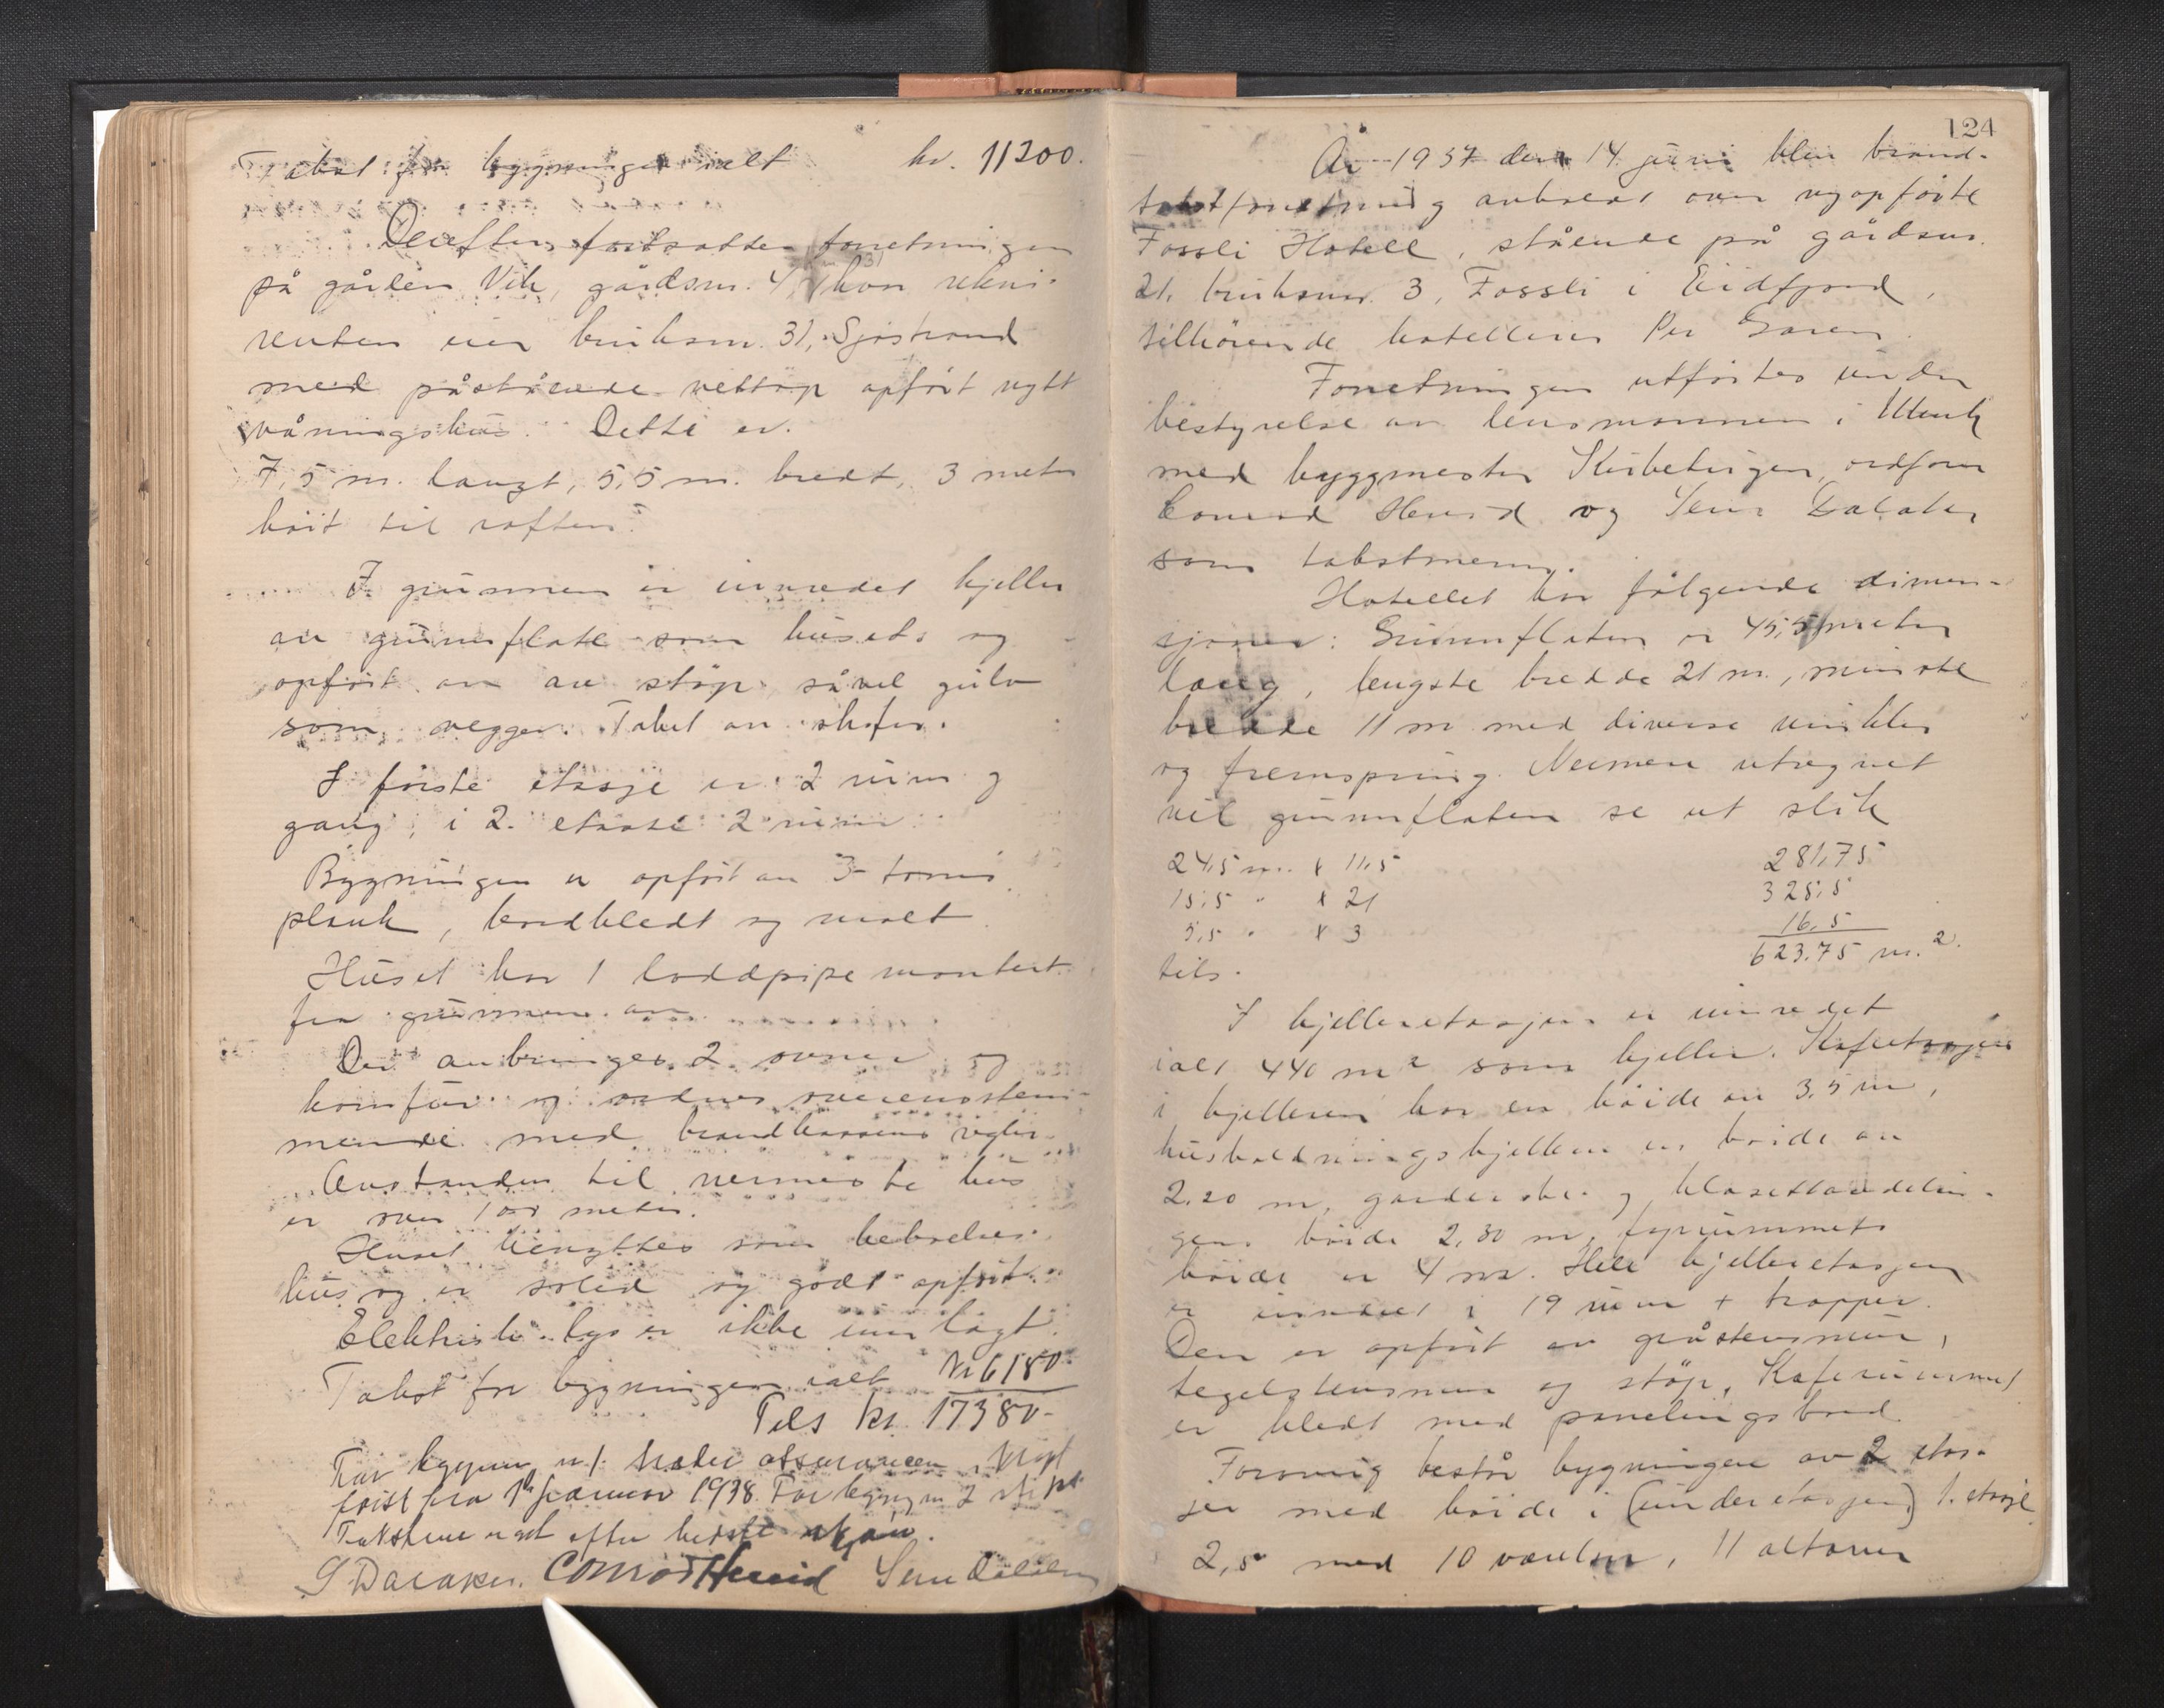 Takst for bygningen ialt kr. 11200.
Derefter fortsattes forretningen
på gården Vik, gårdsnr. 4, hvor rekvi-
renten eier bruksnr. 31, Sjøstrand
med påstående nettop opført nytt
våningshus. Dette er.
7,5 m. langt, 5,5 m. bredt, 3 meter
høit til raften.
I grunnen er innredet kjeller
av grunnflate som husets og
opført av støp såvel gulv
som vegger. Takt av skifer.
I første etasje er 2 rum og
gang, i 2. etasje 2 rum
Bygningen er opført av 3 toms
plank, bordkledt og malt
Huset har 1 loddpipe montert
fra grunnen av.
Der anbringes 2 ovner og
komfur og ordnes overensstem-
mende med brandkassens regler.
Avstanden til nærmeste hus
er over 100 meter.
Huset benyttes som beboelses-
hus og er solid og godt opført.
Elektrisk lys er ikke innlagt.
Takst for bygningen ialt kr 6180-
Tils kr. 17380-
For bygning nr 1. træder assurancen i kraft
først fra 1ste januar 1938. For bygnr 2 straks
Takstene er sat efter bedste skjøn.
S Daraker. Conrad Hereid Sem Dalaker
124
År 1937 den 14 juni blev brand-
takstforretning avholdt over nyopførte
Fossli Hotell, stående på gårdsnr.
21, bruksnr. 3, Fossli i Eidfjord,
tilhørende hotelleier Per Garen.
Forretningen utførtes under
bestyrelse av lensmannen i Ulvik
med byggmester Skirbekigen, ordfører
Conrad Hereid og Sem Dalaker
som takstmenn.
Hotellet har følgende dimen-
sjoner: Grunnflaten er 45,5 meter
lang, lengste bredde 21 m., minste
bredde 11 m med diverse vinkler
og fremspring. Nermere utregnet
vil grunnflaten se ut slik
24,5 m. x 11,5 281,75
15,5 " x 21 325,5
5,5 " x 3 16,5
tils. 623.75 m.2
I kjelleretasjen er innredet
ialt 440 m2 som kjeller. Kafeetasjen
i kjelleren har en høide av 3,5 m,
husholdningskjelleren en høide av
2.20 m, garderobe- og klosettavdelin-
gens høide 2,30 m, fyrrummets
høide er 4 m. Hele kjelleretasjen
er innredet i 19 rum + trapper.
Den er opført av gråstensmur,
tegelstensmur og støp, Kaferummet
er kledt med panelingsbord.
Forøvrig består bygningen av 2 etas-
jer med høide i (underetasjen) 1. etasje
2,5 med 10 værelser, 11 altaner